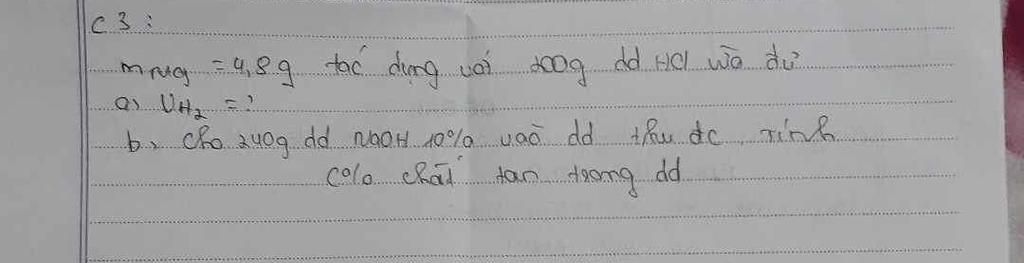 C3:
mMg = 4,8g tác dụng với 200g dd HCl vừa đủ
a) VH2 = ?
b, cho 240g dd NaOH 10% vào dd thu đc. Tính
C% chất tan trong dd